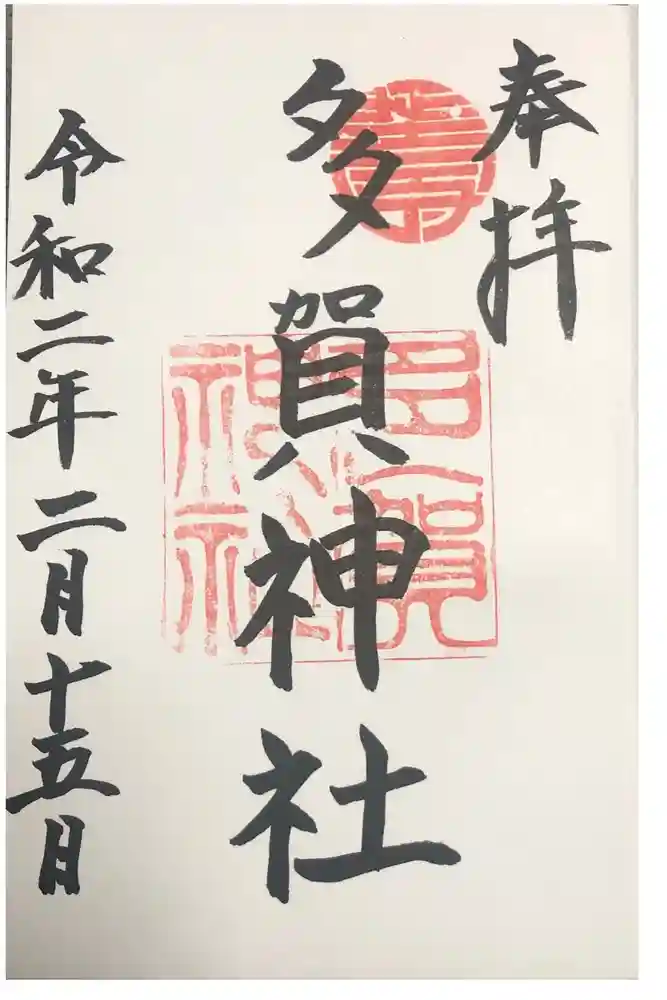 奉拝
壽
多賀神社
多賀
神社
令和二年二月十五日